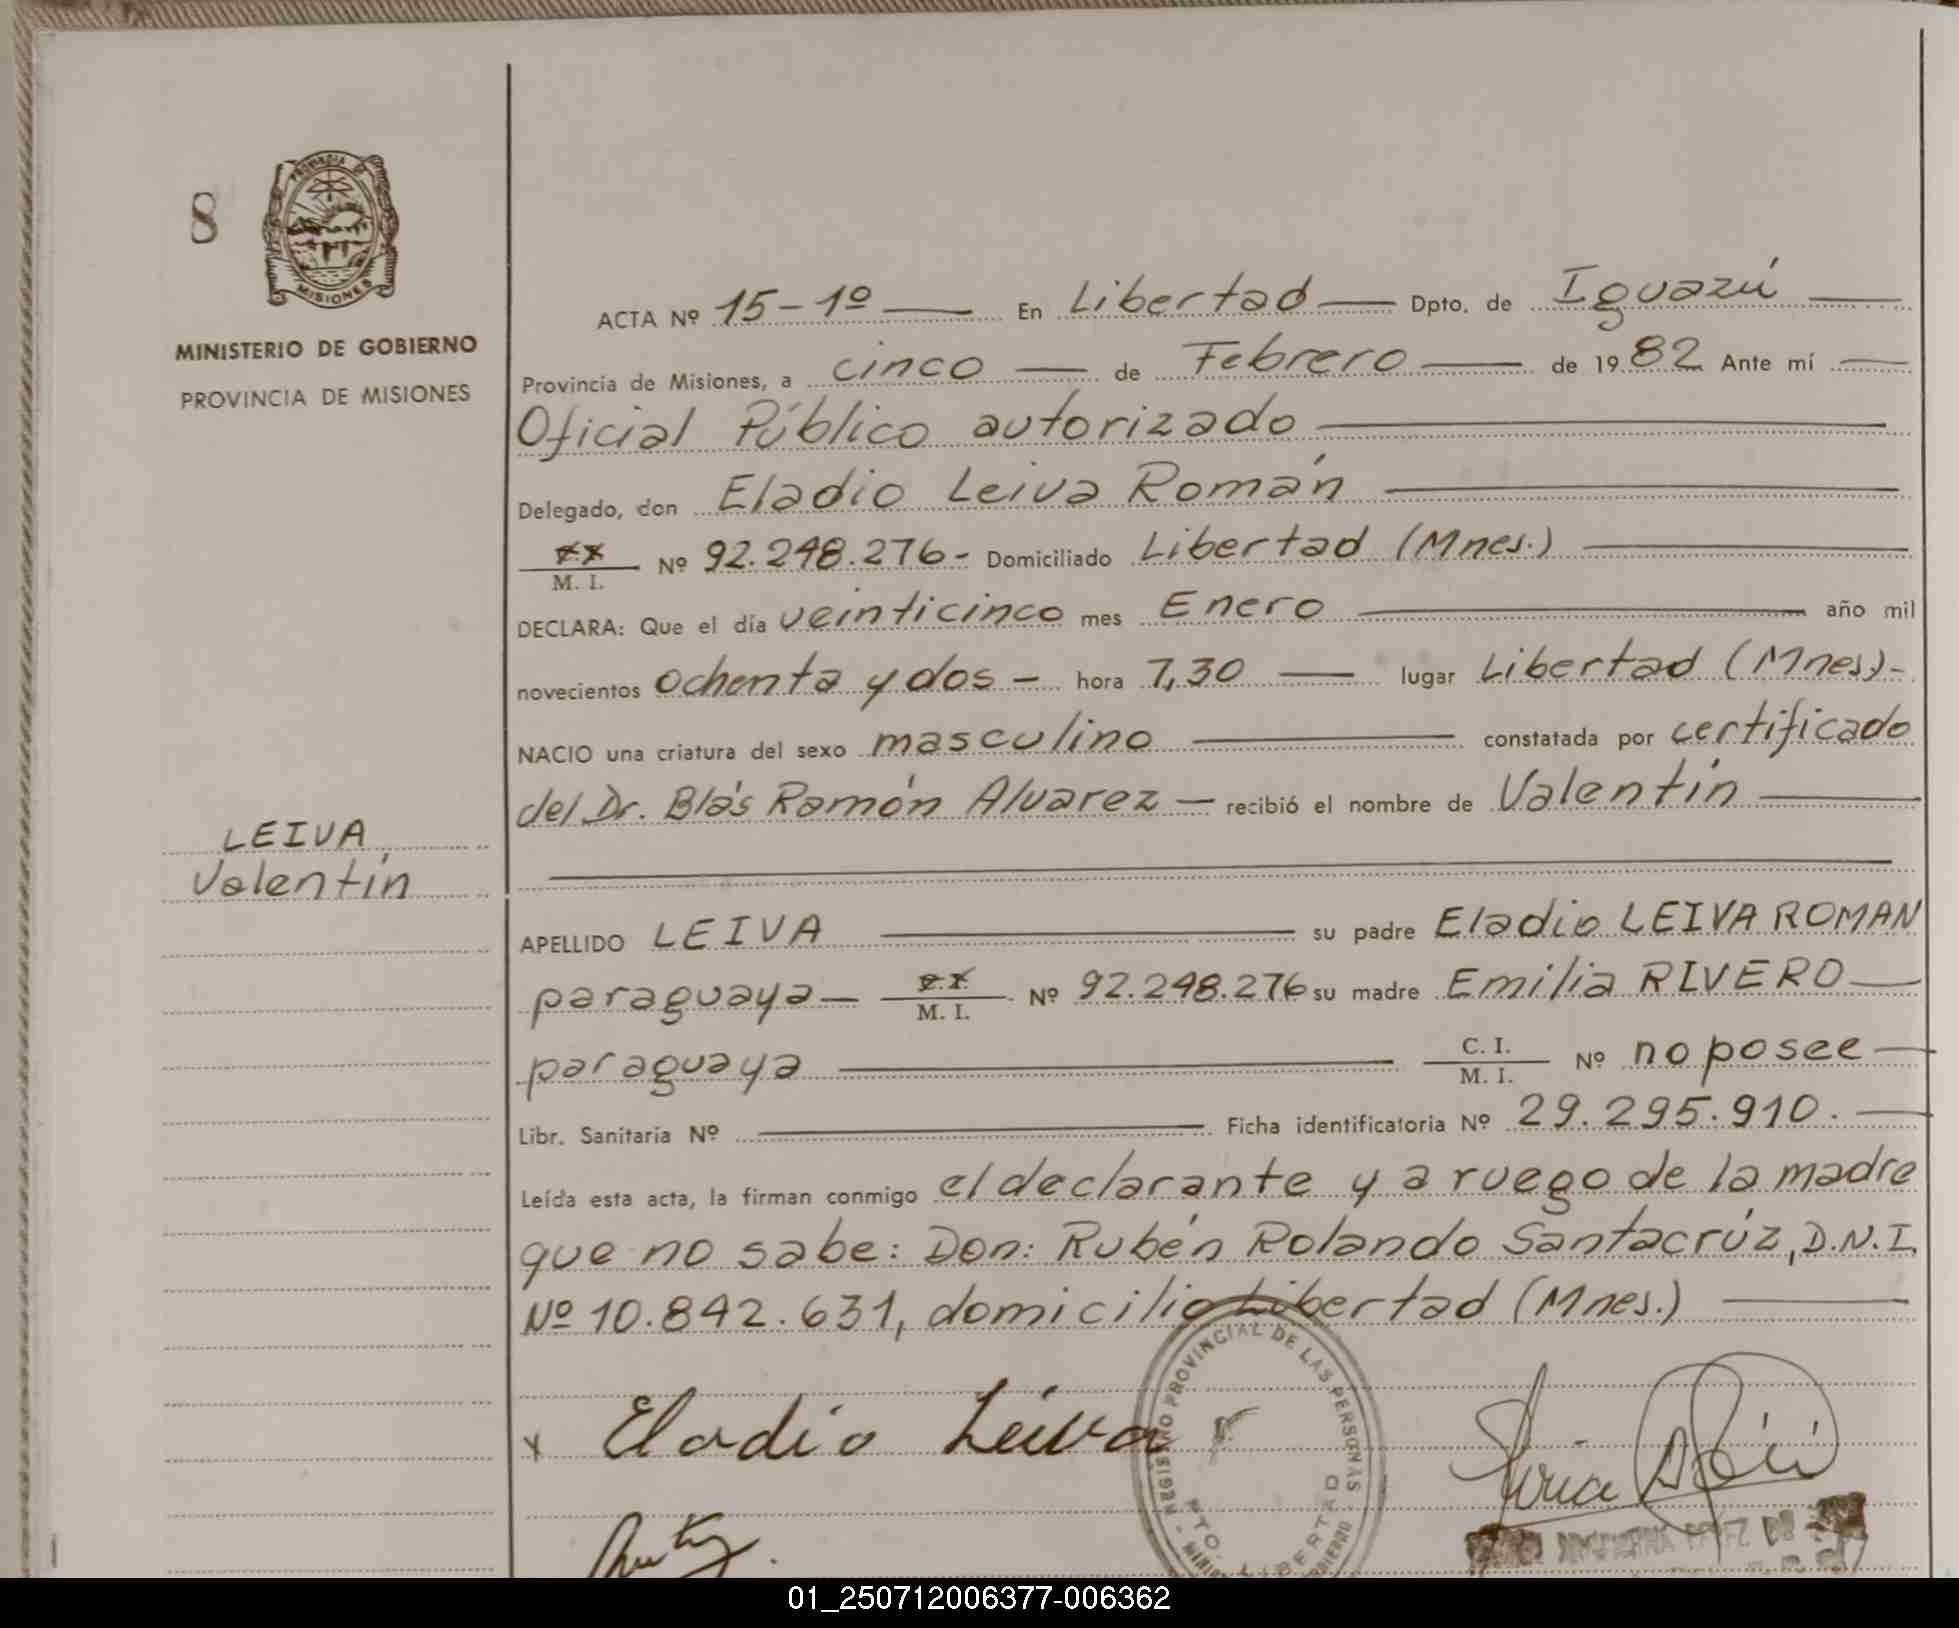 8
PROVINCIA DE
MISIONES
MINISTERIO DE GOBIERNO
PROVINCIA DE MISIONES
LEIVA,
Valentín
ACTA Nº 15-1º En Libertad Dpto. de Iguazú
Provincia de Misiones, a cinco de Febrero de 1982 Ante mí
Oficial Público autorizado
Delegado, don Eladio Leiva Román
M. I. Nº 92.248.276- Domiciliado Libertad (Mnes.)
DECLARA: Que el día veinticinco mes Enero año mil
novecientos ochenta y dos - hora 7,30 lugar Libertad (Mnes)-
NACIO una criatura del sexo masculino constatada por certificado
del Dr. Blás Ramón Alvarez - recibió el nombre de Valentín
APELLIDO LEIVA su padre Eladio LEIVA ROMAN
paraguaya- M. I. Nº 92.248.276 su madre Emilia RIVERO
paraguaya C. I. M. I. Nº no posee
Libr. Sanitaria Nº Ficha identificatoria Nº 29.295.910.
Leída esta acta, la firman conmigo el declarante y a ruego de la madre
que no sabe: Don: Rubén Rolando Santacrúz, D.N.I.
Nº 10.842.631, domicilio Libertad (Mnes.)
x Eladio Leiva
REGISTRO PROVINCIAL DE LAS PERSONAS
PTO. LIBERTAD
01_250712006377-006362